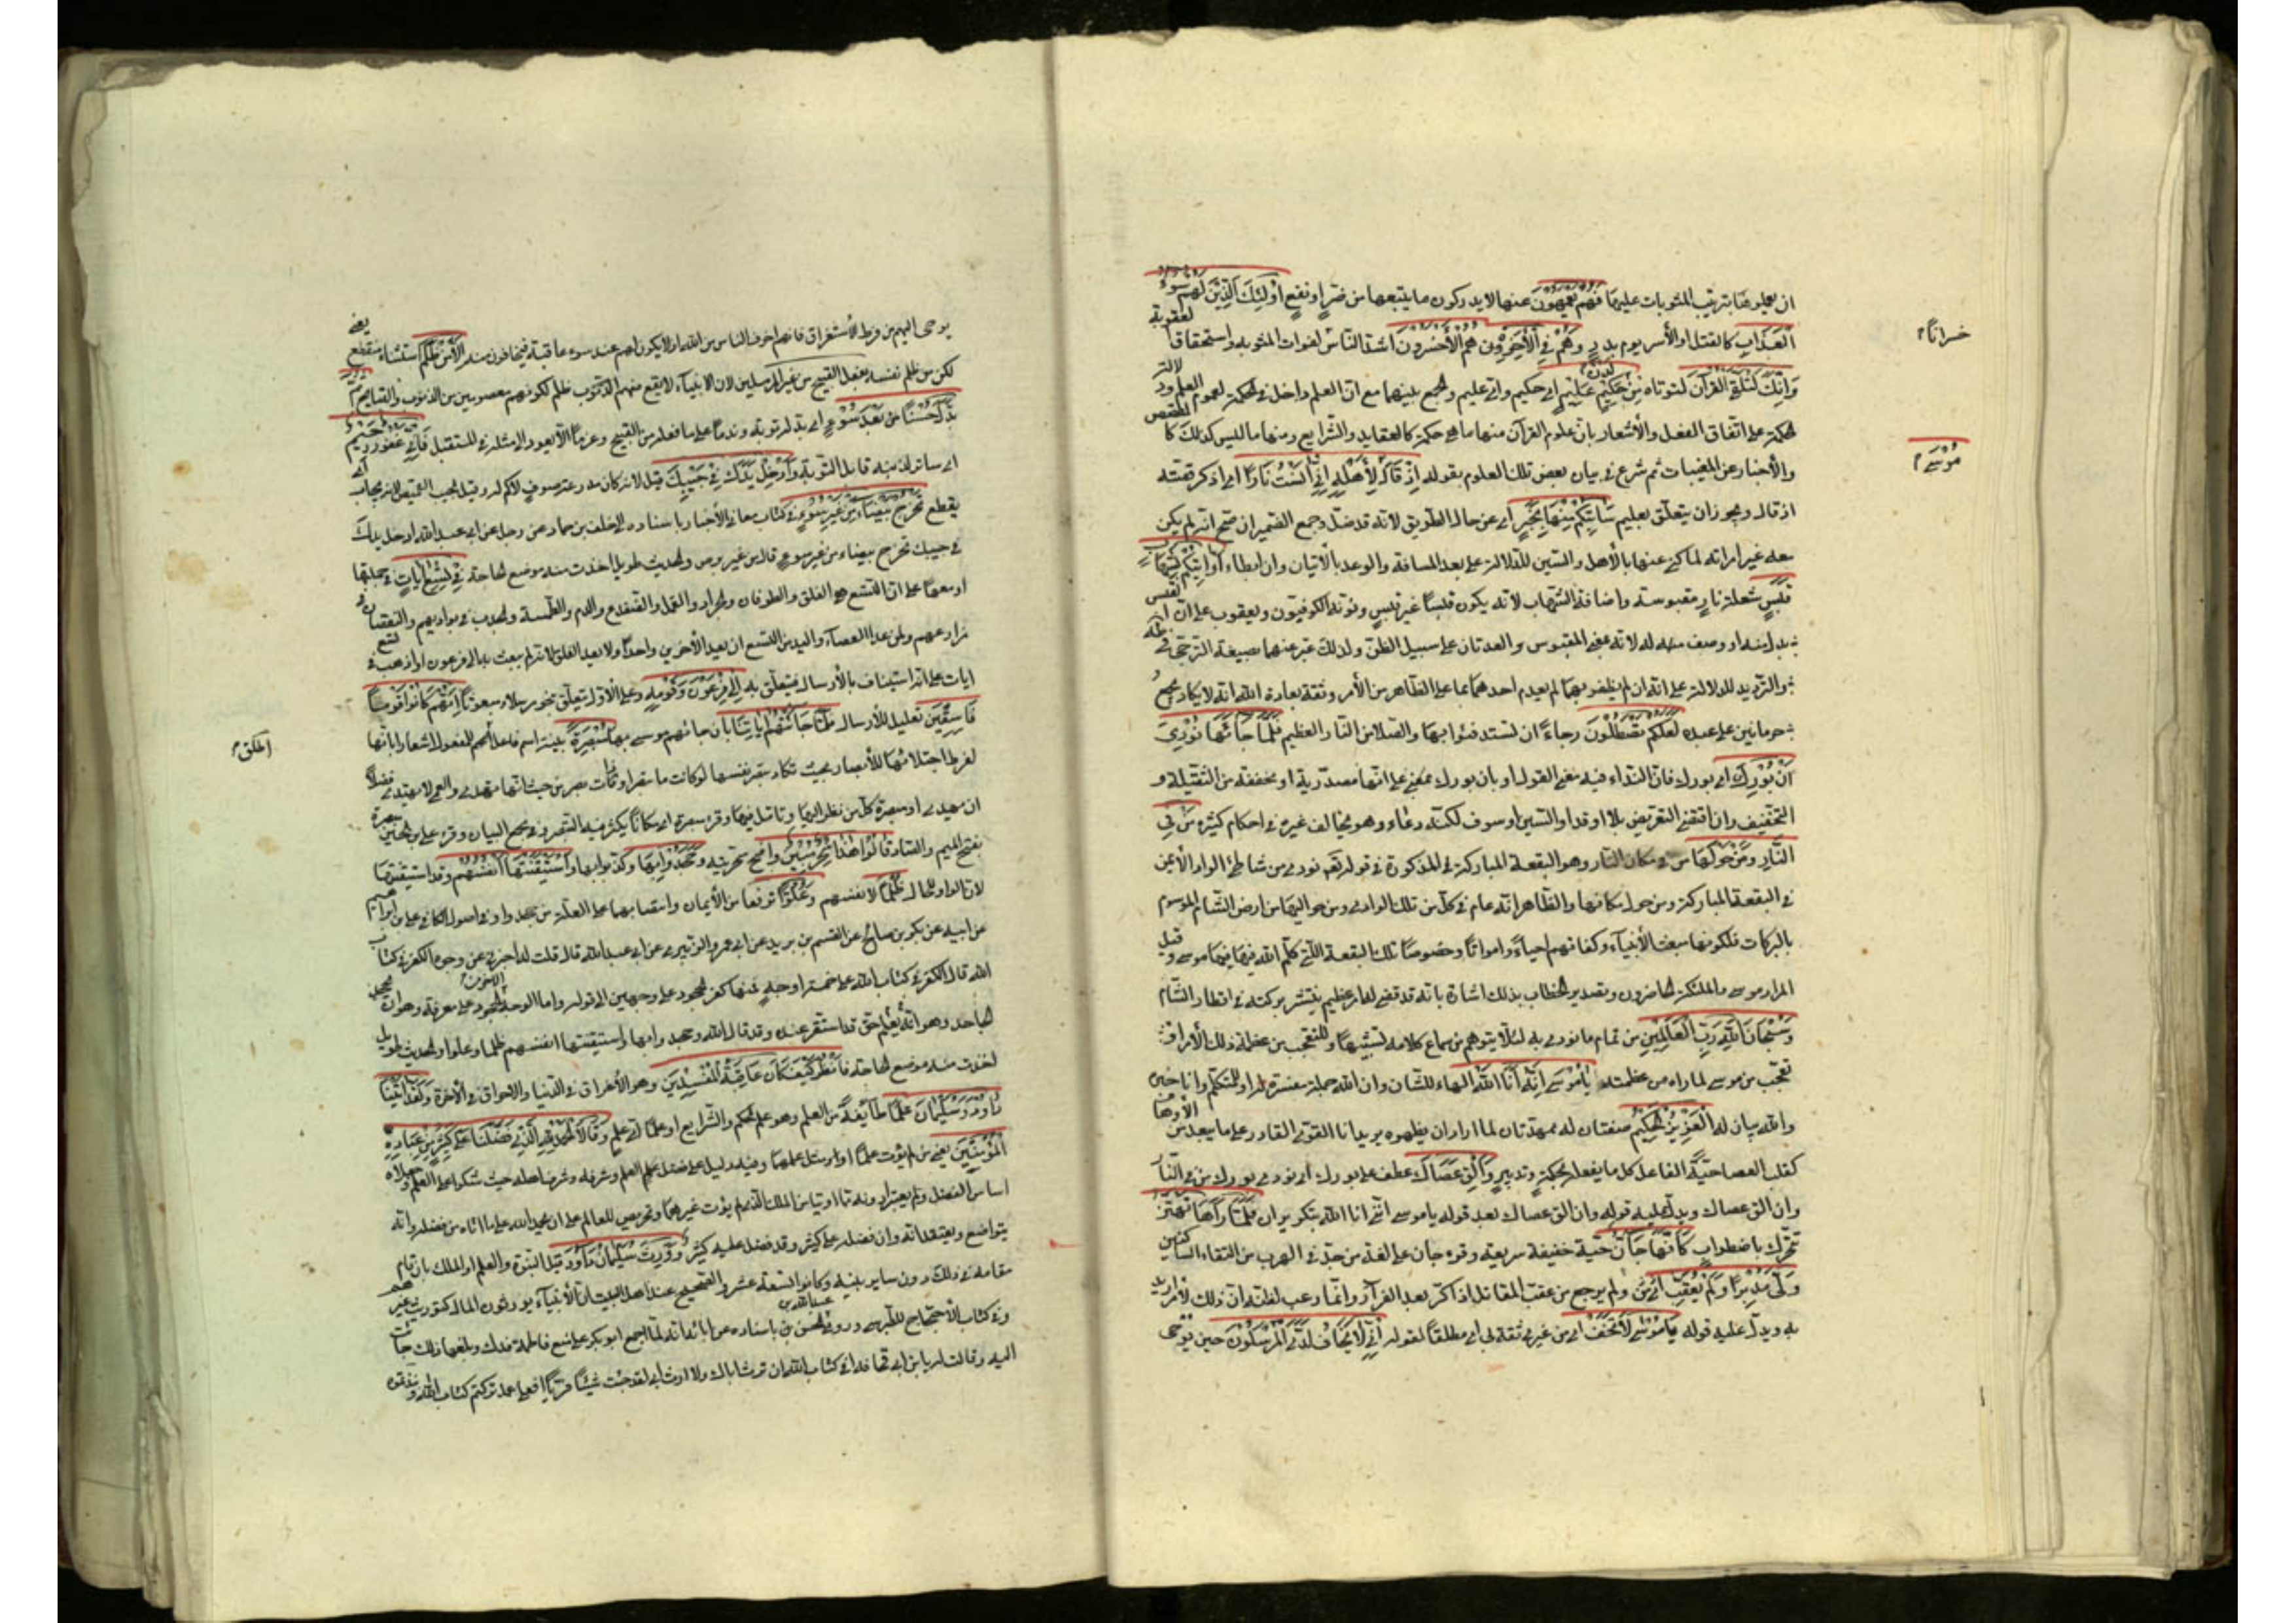 ان يعلموها بترتيب المثوبات عليها فَهُمْ يَعْمَهُونَ عنها لا يدركون ما يتبعها من ضرّ او نفع أُولَئِكَ الَّذِينَ لَهُمْ سُوءُ
الْعَذَابِ كالقتل او الأسر يوم بدر وَهُمْ فِي الْآخِرَةِ هُمُ الْأَخْسَرُونَ اشد الناس لفوات المثوبة واستحقاقا لعقوبة
خسرانا
وَإِنَّكَ لَتُلَقَّى الْقُرْآنَ لتؤتاه مِنْ لَدُنْ حَكِيمٍ عَلِيمٍ اي حكيم واي عليم والجمع بينهما مع ان العلم داخل في الحكمة لعموم العلم ودلالة
الحكمة على اتفاق الفعل والأشعار بان علوم القرآن منها ما هي حكمة كالعقايد والشرايع ومنها ما ليس كذلك كالقصص
والأخبار عن المغيبات ثم شرع في بيان بعض تلك العلوم بقوله إِذْ قَالَ مُوسَى لِأَهْلِهِ إِنِّي آنَسْتُ نَارًا اي اذكر قصته
اذ قال ويجوز ان يتعلّق بعليم سَآتِيكُمْ مِنْهَا بِخَبَرٍ اي عن حال الطريق لانه قد ضل وجمع الضمير ان صحّ انه لم يكن
معه غير امراته لما كنى عنها بالأهل والسين للدلالة على بعد المسافة والوعد بالاتيان وان ابطاء أَوْ آتِيكُمْ بِشِهَابٍ
قَبَسٍ شعلة نار مقبوسة واضافة الشهاب لانه يكون قبسًا وغير قبس ونوّنه الكوفيّون ويعقوب على ان القبس
بدل منه او وصف له لانه بمعنى المقبوس والعدتان على سبيل الظن ولذلك عبّر عنهما بصيغة الترجي في طه
والترديد للدلالة على انه ان لم يظفر بهما لم يعدم احدهما بناء على الظاهر من الأمر وثقة بعادة الله انه لا يكاد يجمع
حرمانين على عبده لَعَلَّكُمْ تَصْطَلُونَ رجاءً ان تستدفئوا بها والصلا النار العظيم فَلَمَّا جَاءَهَا نُودِيَ
أَنْ بُورِكَ اي بورك فان النداء فيه معنى القول او بان بورك على انها مصدرية او مخففة من الثقيلة و
التخفيف وان اقتضى التعويض بلا او قد او السين او سوف لكنه دعاء وهو يخالف غيره في احكام كثيرة مَنْ فِي
النَّارِ وَمَنْ حَوْلَهَا من في مكان النار وهو البقعة المباركة المذكورة في قوله تعالى نودي من شاطئ الواد الأيمن
في البقعة المباركة ومن حول مكانها والظاهر انه عام في كل من تلك الوادي وحواليها من ارض الشام الموسوم
بالبركات لكونها مبعث الأنبياء وكفاتهم احياءً وامواتًا وخصوصًا تلك البقعة التي كلّم الله فيها موسى وقيل
المراد موسى والملائكة الحاضرون وتصدير الخطاب بذلك اشارة بانه قد قضى له امر عظيم ينتشر بركته في اقطار الشام
وَسُبْحَانَ اللَّهِ رَبِّ الْعَالَمِينَ من تمام ما نودي به لئلا يتوهم من سماع كلامه تشبيها وللتعجب من عظمة ذلك الأمر او
تعجب من موسى لما راه من عظمته يَا مُوسَى إِنَّهُ أَنَا اللَّهُ الهاء للشان وانا الله جملة مفسّرة له او للمتكلم وانا خبره
والله بيان له الْعَزِيزُ الْحَكِيمُ صفتان له ممهدتان لما اراد ان يظهره يريد انا القوي القادر على ما يبعد من الأوهام
كقلب العصا حيّة الفاعل كل ما يفعله بحكمة وتدبير وَأَلْقِ عَصَاكَ عطف على بورك اي نودي بورك من في النار
وان الق عصاك ويدل عليه قوله وان الق عصاك بعد قوله يا موسى اني انا الله بتكرير ان فَلَمَّا رَآهَا تَهْتَزُّ
تتحرك باضطراب كَأَنَّهَا جَانٌّ حيّة خفيفة سريعة وقرء جأن على لغة من جدّ في الهرب من التقاء الساكنين
وَلَّى مُدْبِرًا وَلَمْ يُعَقِّبْ ولم يرجع من عقّب المقاتل اذا كرّ بعد الفرار وانما رعب لظنه ان ذلك لأمر اريد
به ويدل عليه قوله يَا مُوسَى لَا تَخَفْ اي من غيري ثقة بي او مطلقًا لقوله إِنِّي لَا يَخَافُ لَدَيَّ الْمُرْسَلُونَ حين يوحى
موسى
يوحى اليهم من فرط الأستغراق فانهم اخوف الناس من الله او لا يكون لهم عند سوء عاقبة فيخافون منه إِلَّا مَنْ ظَلَمَ استثناء منقطع يعني
لكن من ظلم نفسه بفعل القبيح من غير المرسلين لان الانبياء لا يقع منهم الذنوب ظلم لكونهم معصومين من الذنوب والقبايح ثُمَّ
بَدَّلَ حُسْنًا بَعْدَ سُوءٍ اي بدّل توبة وندما على ما فعله من القبيح وعزما ألا يعود الى مثله في المستقبل فَإِنِّي غَفُورٌ رَحِيمٌ
اي ساتر لذنبه قابل التوبة وَأَدْخِلْ يَدَكَ فِي جَيْبِكَ قيل لانه كان مدرعة صوف لا كم له وقيل الجيب القميص لانه يجاب اي
يقطع تَخْرُجْ بَيْضَاءَ مِنْ غَيْرِ سُوءٍ في كتاب معاني الأخبار باسناده الى خلف بن حماد عن رجل عن ابي عبد الله ادخل يدك
في جيبك تخرج بيضاء من غير سوء قال من غير برص والحديث طويل اخذت منه موضع الحاجة فِي تِسْعِ آيَاتٍ في جملتها
او معها على ان التسع هي الفلق والطوفان والجراد والقمل والضفدع والدم والطمسة والجدب في بواديهم والنقصان
في مزارعهم ولمن عدا العصا واليد من التسع ان يعد الأخيرين واحدا ولا يعد الفلق لانه لم يبعث به الى فرعون او اذهب في تسع
ايات على انه استيناف بالأرسال فيتعلّق به إِلَى فِرْعَوْنَ وَقَوْمِهِ وعلى الأول يتعلق بنحو مرسلا ومبعوثا إِنَّهُمْ كَانُوا قَوْمًا
فَاسِقِينَ تعليل للأرسال فَلَمَّا جَاءَتْهُمْ آيَاتُنَا بان جاءهم موسى بها مُبْصِرَةً بينة اسم فاعل اطلق للمفعول اشعارا بانها
لفرط اجتلائها للأبصار بحيث تكاد تبصر نفسها لو كانت مما يبصر او ذات بصر من حيث انها تهدي والعمى لا تهتدي فضلا
ان تهدي او مبصرة كل من نظر اليها وتامّل فيها وقرء مبصرة اي مكانا يكثر فيه التبصر في مجمع البيان وقرء علي بن الحسين
بفتح الميم والصاد قَالُوا هَذَا سِحْرٌ مُبِينٌ واضح سحريته وَجَحَدُوا بِهَا وكذّبوا بها وَاسْتَيْقَنَتْهَا أَنْفُسُهُمْ وقد استيقنتها
لان الواو للحال ظُلْمًا لأنفسهم وَعُلُوًّا ترفّعا من الأيمان وانتصابهما على العلّة من جحدوا وفي اصول الكافي علي بن ابراهيم
عن ابيه عن بكر بن صالح عن القسم بن بريد عن ابي عمرو الزبيري عن ابي عبد الله قال قلت له اخبرني عن وجوه الكفر في كتاب
الله قال الكفر في كتاب الله على خمسة اوجه فمنها كفر الجحود على وجهين الى قوله واما الوجه الاخر من الجحود على معرفة وهو ان يجحد
الجاحد وهو يعلم انه حق قد استقر عنده وقد قال الله وجحدوا بها واستيقنتها انفسهم ظلما وعلوا والحديث طويل
اخذت منه موضع الحاجة فَانْظُرْ كَيْفَ كَانَ عَاقِبَةُ الْمُفْسِدِينَ وهو الأغراق في الدنيا والاحراق في الآخرة وَلَقَدْ آتَيْنَا
دَاوُدَ وَسُلَيْمَانَ عِلْمًا طايفة من العلم وهو علم الحكم والشرايع او علما اي علم وَقَالَا الْحَمْدُ لِلَّهِ الَّذِي فَضَّلَنَا عَلَى كَثِيرٍ مِنْ عِبَادِهِ
الْمُؤْمِنِينَ يعني من لم يؤت علما او مثل علمهما وفيه دليل على فضل العلم وشرفه وشرف اهله حيث شكرا على العلم وجعلاه
اساس الفضل ولم يعتبرا دونه ما اوتيا من الملك الذي لم يؤت غيرهما وتحريص للعالم على ان يحمد الله على ما اتاه من فضله وانه
يتواضع ويعتقد انه وان فضل على كثير وقد فضل عليه كثير وَوَرِثَ سُلَيْمَانُ دَاوُدَ قيل النبوة والعلم او الملك بان قام
مقامه في ذلك دون ساير بنيه وكانوا تسعة عشر والصحيح عند اهل البيت ان الأنبياء يورثون المال كتوريث غيرهم
وفي كتاب الأحتجاج للطبرسي وروى عبد الله بن الحسن باسناده عن ابائه انه لما اجمع ابو بكر على منع فاطمة فدك وبلغها ذلك جائت
اليه وقالت له يا بن ابي قحافة افي كتاب الله ان ترث اباك ولا ارث ابي لقد جئت شيئًا فريًّا افعلى عمد تركتم كتاب الله ونبذتموه
اطلق